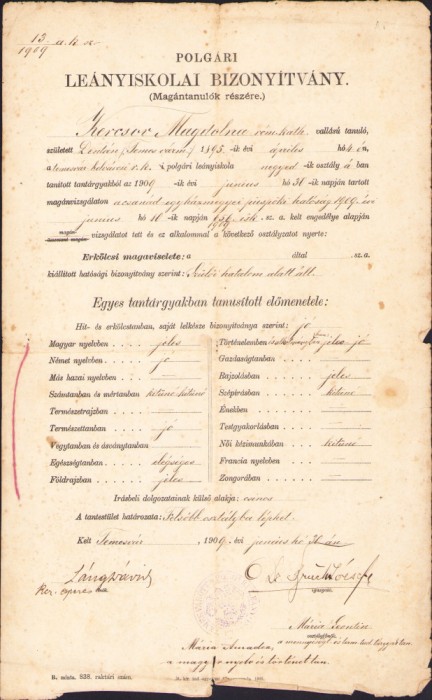 13
1909 a. k. sz.
POLGÁRI
LEÁNYISKOLAI BIZONYÍTVÁNY.
(Magántanulók részére.)
Kercsov Magdolna róm. kath. vallású tanuló,
született (Temes várm.) 1895 -ik évi április hó 4 én,
a temesvár r. k. polgári leányiskola negyed -ik osztály á ban
tanított tantárgyakból az 1909 -ik évi junius hó 30 -ik napján tartott
magánvizsgálaton a csanád egyházmegyei püspöki hatóság 1909. évi
junius hó 10 ik napján sz. a. kelt engedélye alapján
vizsgálatot tett és ez alkalommal a következő osztályzatot nyerte:
Erkölcsi magaviselete: a által sz. a.
kiállított hatósági bizonyítvány szerint: Szülői hatalom alatt áll.
Egyes tantárgyakban tanusított előmenetele:
Hit- és erkölcstanban, saját lelkésze bizonyítványa szerint: jó
Magyar nyelvben jeles
Német nyelvben jó
Más hazai nyelvben
Számtanban és mértanban kitünő kitünő
Természetrajzban
Természettanban jó
Vegytanban és ásványtanban
Egészségtanban elégséges
Földrajzban jeles
Történelemben jeles jó
Gazdaságtanban
Rajzolásban jeles
Szépírásban kitünő
Énekben
Testgyakorlásban
Női kézimunkában kitünő
Francia nyelvben
Zongorában
Irásbeli dolgozatainak külső alakja: csinos
A tantestület határozata: Felsőbb osztályba léphet.
Kelt Temesvár, 1909. évi junius hó án
Láng
igazgató.
Mária
Mária Amadea,
a magyar nyelv és történet tan.
R. szám. 838. raktári szám.